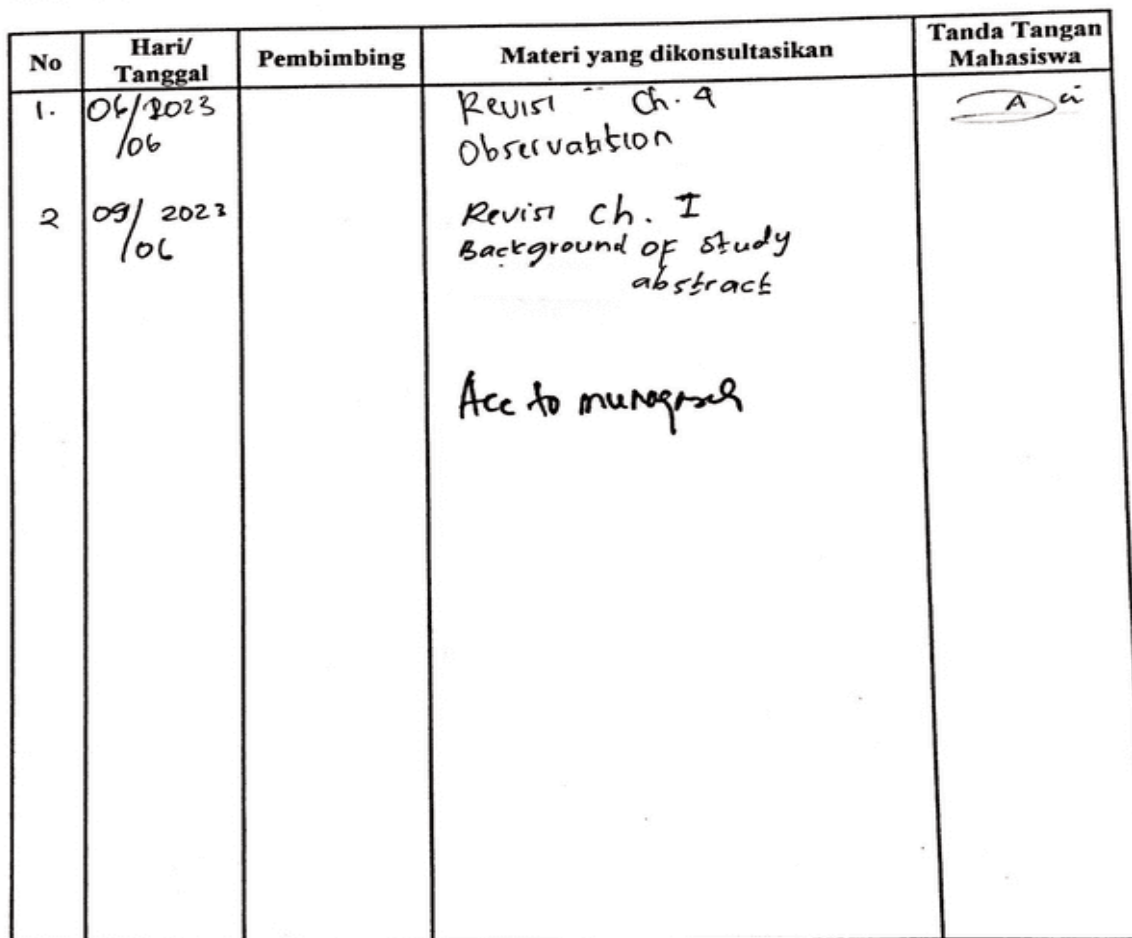 No Hari/ Tanggal Pembimbing Materi yang dikonsultasikan Tanda Tangan Mahasiswa
1. 06/2023 Revisi Ch. 4
/06 Observabtion
2 09/ 2023 Revisi Ch. I
/06 Background of study
abstract
Acc to munaqasah